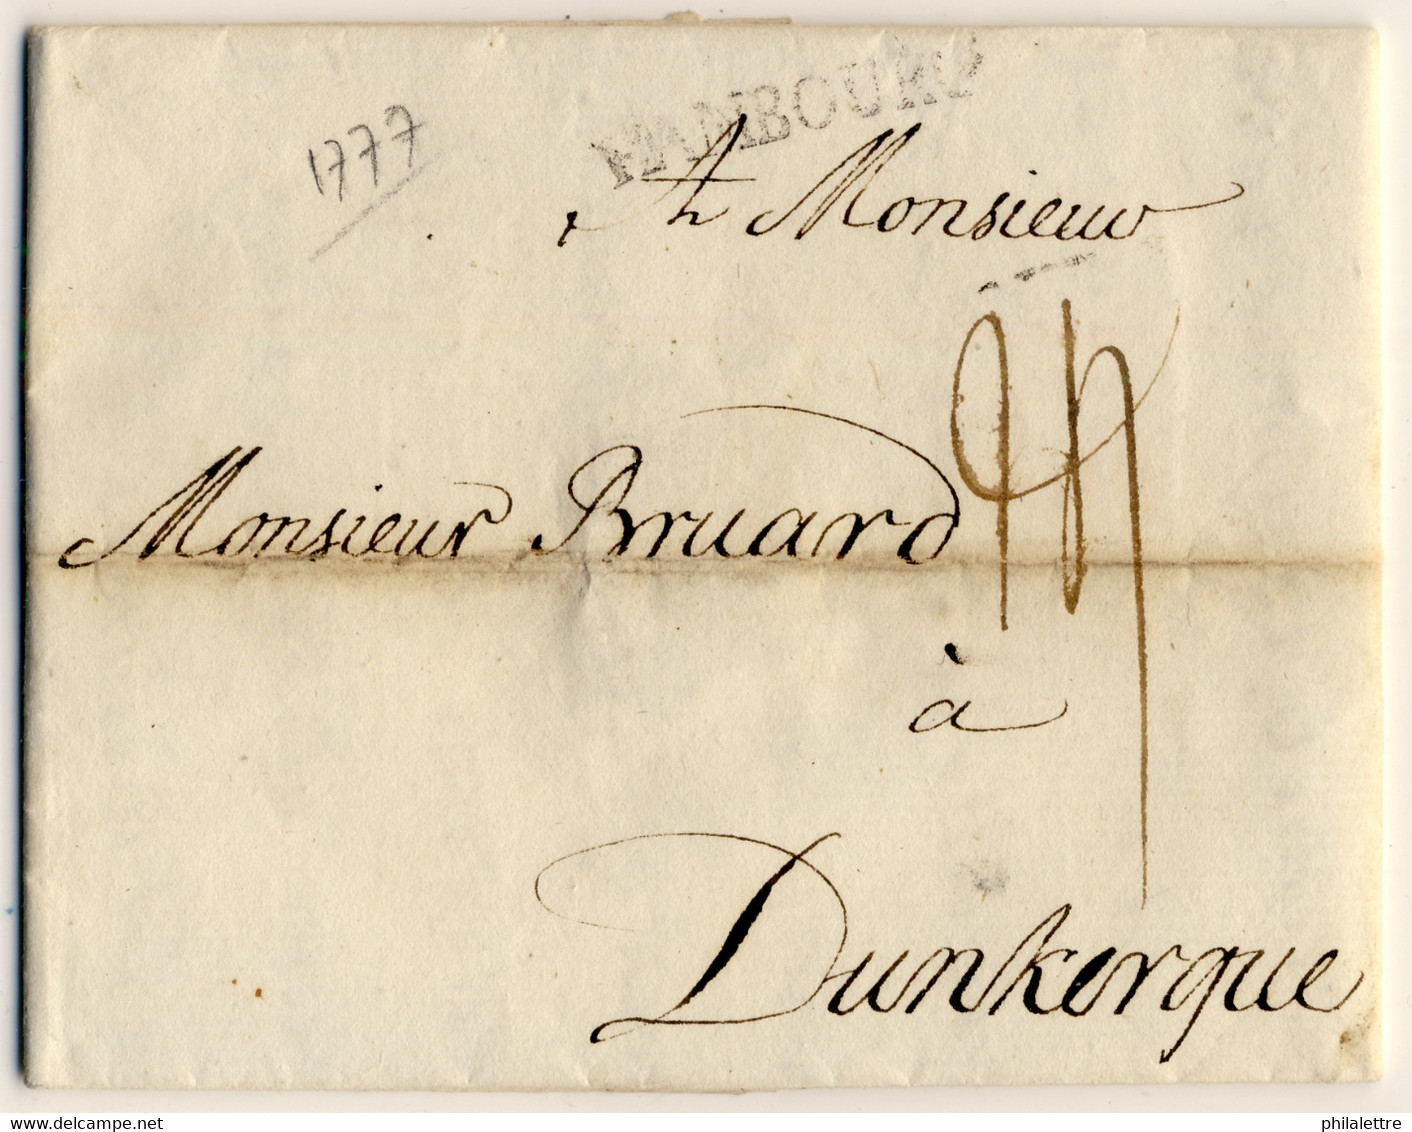 HAMBOURG
1777
A Monsieur
Monsieur Bruard
à
Dunkerque
delcampe.net
philalettre